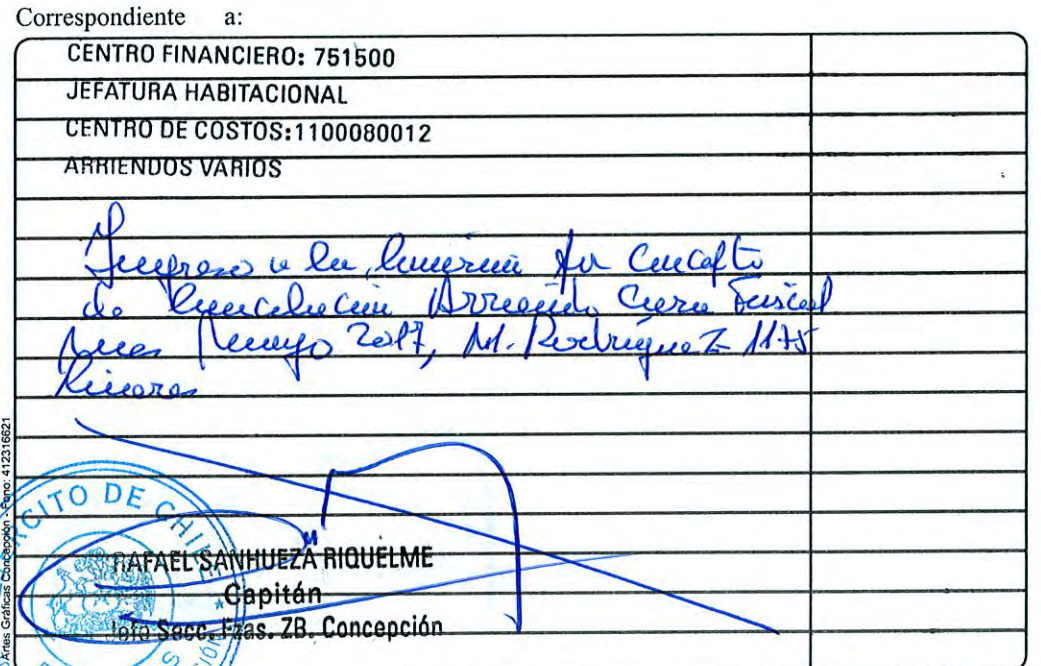 Correspondiente a:
CENTRO FINANCIERO: 751500
JEFATURA HABITACIONAL
CENTRO DE COSTOS:1100080012
ARRIENDOS VARIOS
Ingreso a la por Concepto
de Cancelación Arriendo Casa Fiscal
mes Mayo 2017, M. Rodríguez 1175
Linares
RAFAEL SANHUEZA RIQUELME
Capitán
Jefe Secc. Fzas. ZB. Concepción
ÉRCITO DE CHILE
Artes Gráficas Concepción - Fono: 412316621